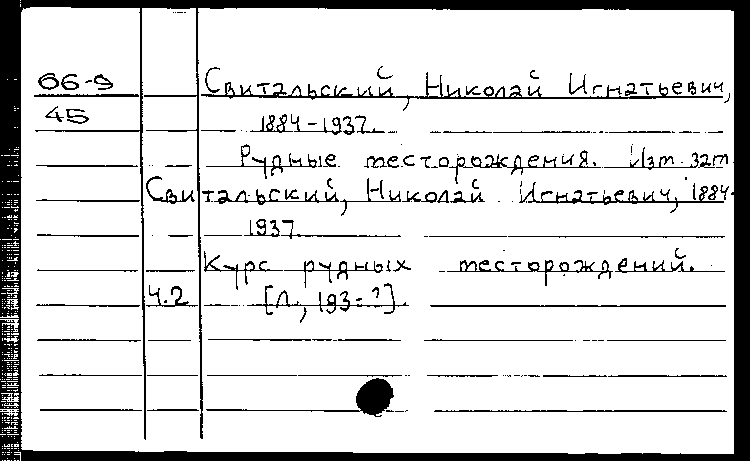 66-9 Свитальский, Николай Игнатьевич,
45 1884-1937.
Рудные месторождения. Изм. загл.
Свитальский, Николай Игнатьевич, 1884-
1937.
Курс рудных месторождений.
Ч.2 [Л., 193=?].